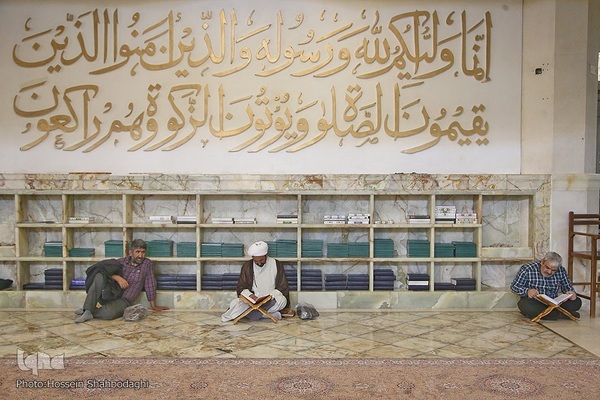 إنما وليكم الله ورسوله والذين آمنوا الذين
يقيمون الصلوة ويؤتون الزكوة وهم راكعون
iqna
Photo:Hossein Shahbodaghi